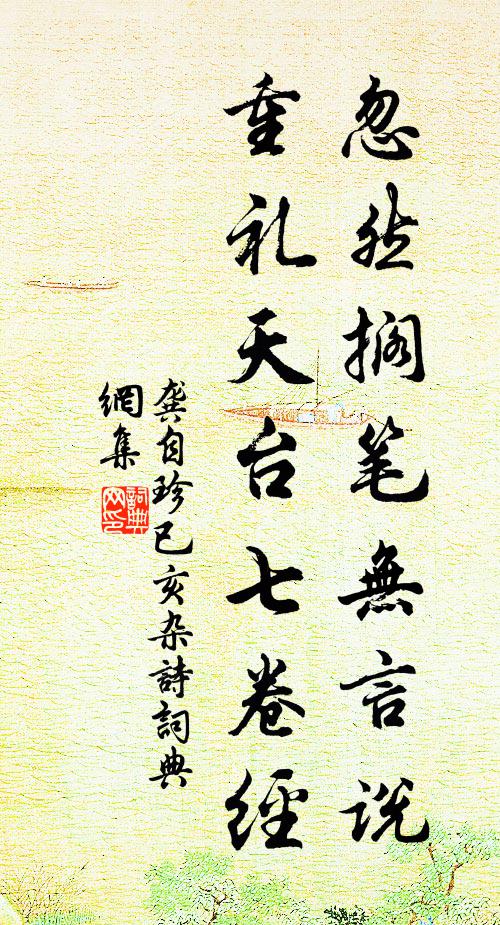 忽然搁笔無言说
重礼天台七卷經
龚自珍己亥杂詩詞典
網集
詞典
网印